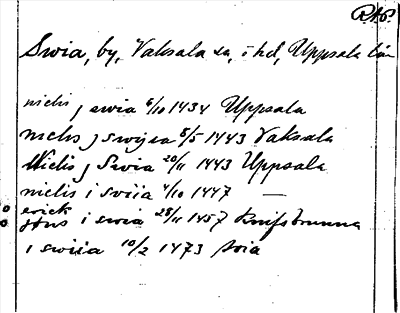 Svia, by, Vaksala sn, i hd, Uppsala län
niclis j svia 6/10 1434 Uppsala
niclis j swiyia 5/5 1443 Vaksala
Niclis j Svia 20/11 1443 Uppsala
niclis i sviia 4/10 1447 —
erick
jöns i svia 28/11 1457 Knifstunna
i swiia 10/2 1473 Svia